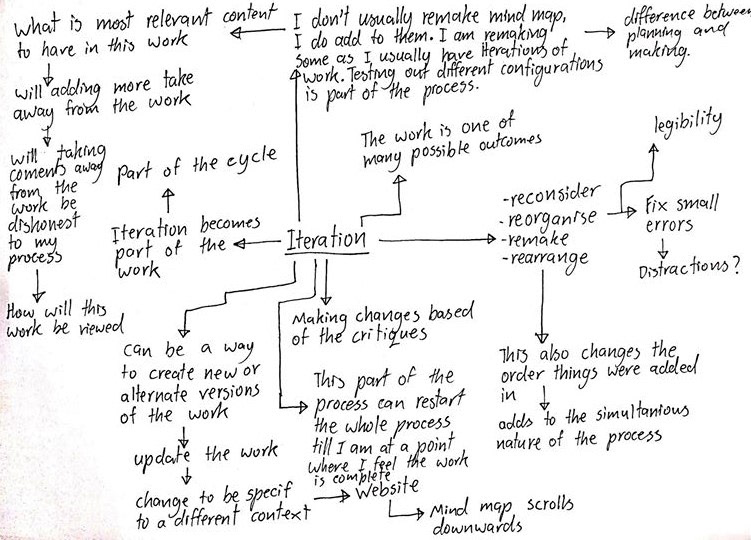 what is most relevant content
to have in this work
will adding more take
away from the work
will taking
coments away
from the
work be
dishonest
to my
process
How will this
work be viewed
I don't usually remake mind map,
I do add to them. I am remaking
some as I usually have iterations of
work. Testing out different configurations
is part of the process.
difference between
planning and
making.
The work is one of
many possible outcomes
part of the cycle
Iteration becomes
part of the
work
Iteration
-reconsider
-reorganise
-remake
-rearrange
legibility
Fix small
errors
Distractions?
This also changes the
order things were added
in
adds to the simultanious
nature of the process
Making changes based
of the critiques
This part of the
process can restart
the whole process
till I am at a point
where I feel the work
is complete
can be a way
to create new or
alternate versions
of the work
update the work
change to be specif
to a different context
Website
Mind map scrolls
downwards